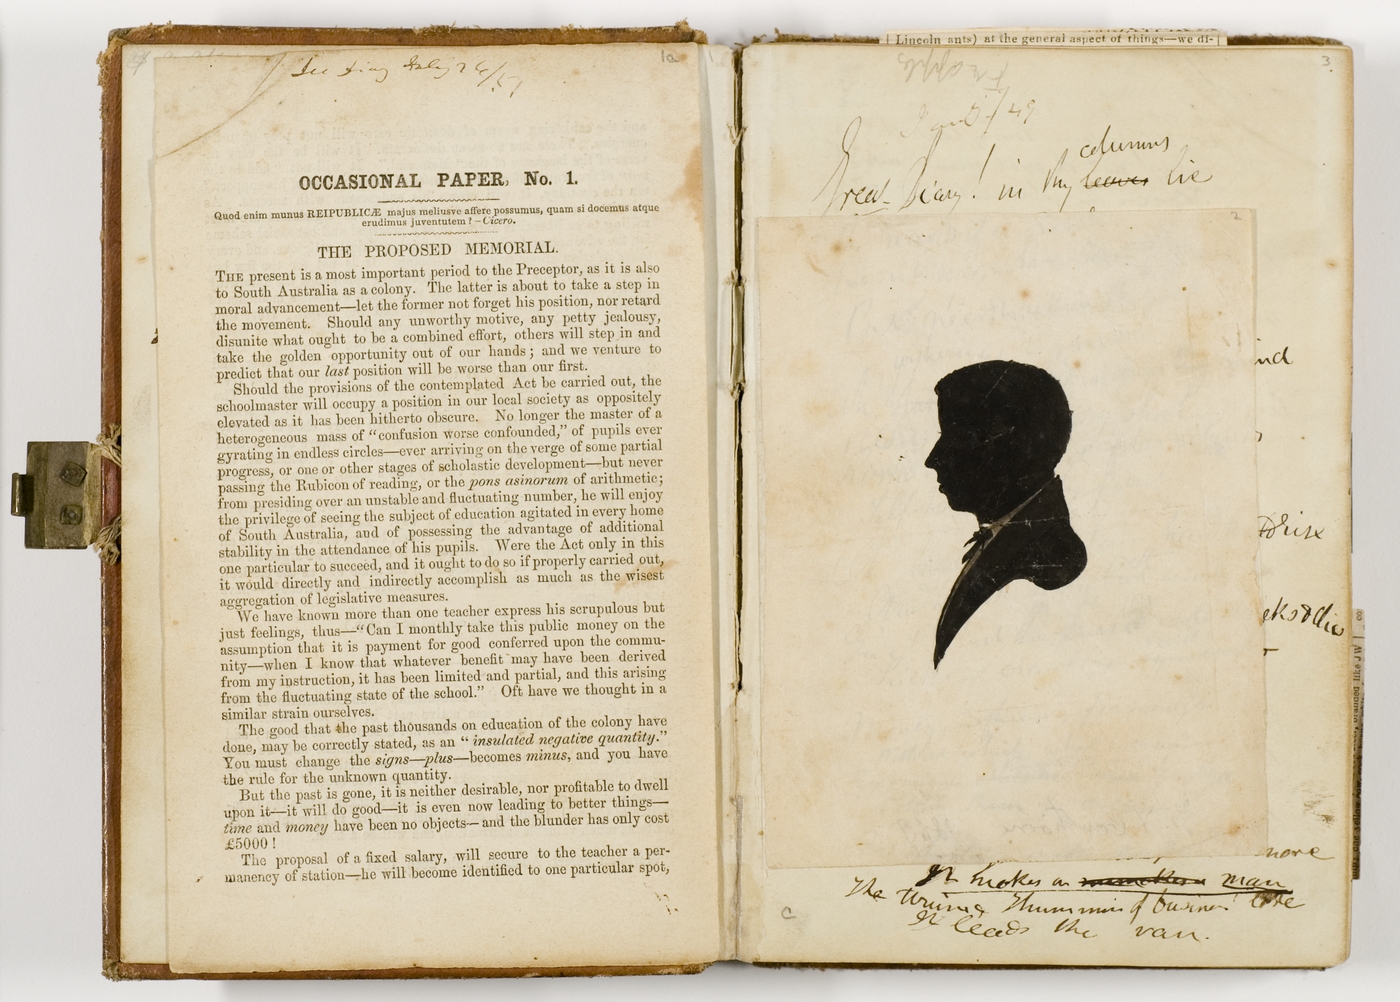 1a
OCCASIONAL PAPER, No. 1.
Quod enim munus REIPUBLICÆ majus meliusve affere possumus, quam si docemus atque
erudimus juventutem?—Cicero.
THE PROPOSED MEMORIAL.
THE present is a most important period to the Preceptor, as it is also
to South Australia as a colony. The latter is about to take a step in
moral advancement—let the former not forget his position, nor retard
the movement. Should any unworthy motive, any petty jealousy,
disunite what ought to be a combined effort, others will step in and
take the golden opportunity out of our hands; and we venture to
predict that our last position will be worse than our first.
Should the provisions of the contemplated Act be carried out, the
schoolmaster will occupy a position in our local society as oppositely
elevated as it has been hitherto obscure. No longer the master of a
heterogeneous mass of “confusion worse confounded,” of pupils ever
gyrating in endless circles—ever arriving on the verge of some partial
progress, or one or other stages of scholastic development—but never
passing the Rubicon of reading, or the pons asinorum of arithmetic;
from presiding over an unstable and fluctuating number, he will enjoy
the privilege of seeing the subject of education agitated in every home
of South Australia, and of possessing the advantage of additional
stability in the attendance of his pupils. Were the Act only in this
one particular to succeed, and it ought to do so if properly carried out,
it would directly and indirectly accomplish as much as the wisest
aggregation of legislative measures.
We have known more than one teacher express his scrupulous but
just feelings, thus—“Can I monthly take this public money on the
assumption that it is payment for good conferred upon the commu-
nity—when I know that whatever benefit may have been derived
from my instruction, it has been limited and partial, and this arising
from the fluctuating state of the school.” Oft have we thought in a
similar strain ourselves.
The good that the past thousands on education of the colony have
done, may be correctly stated, as an “insulated negative quantity.”
You must change the signs—plus—becomes minus, and you have
the rule for the unknown quantity.
But the past is gone, it is neither desirable, nor profitable to dwell
upon it—it will do good—it is even now leading to better things—
time and money have been no objects—and the blunder has only cost
£5000!
The proposal of a fixed salary, will secure to the teacher a per-
manency of station—he will become identified to one particular spot,
Lincoln ants) at the general aspect of things—we di-
3
columns
Great Diary! in thy leaves lie
2
ind
eks & dies
more
It makes a man
The of business
It leads the van.
C